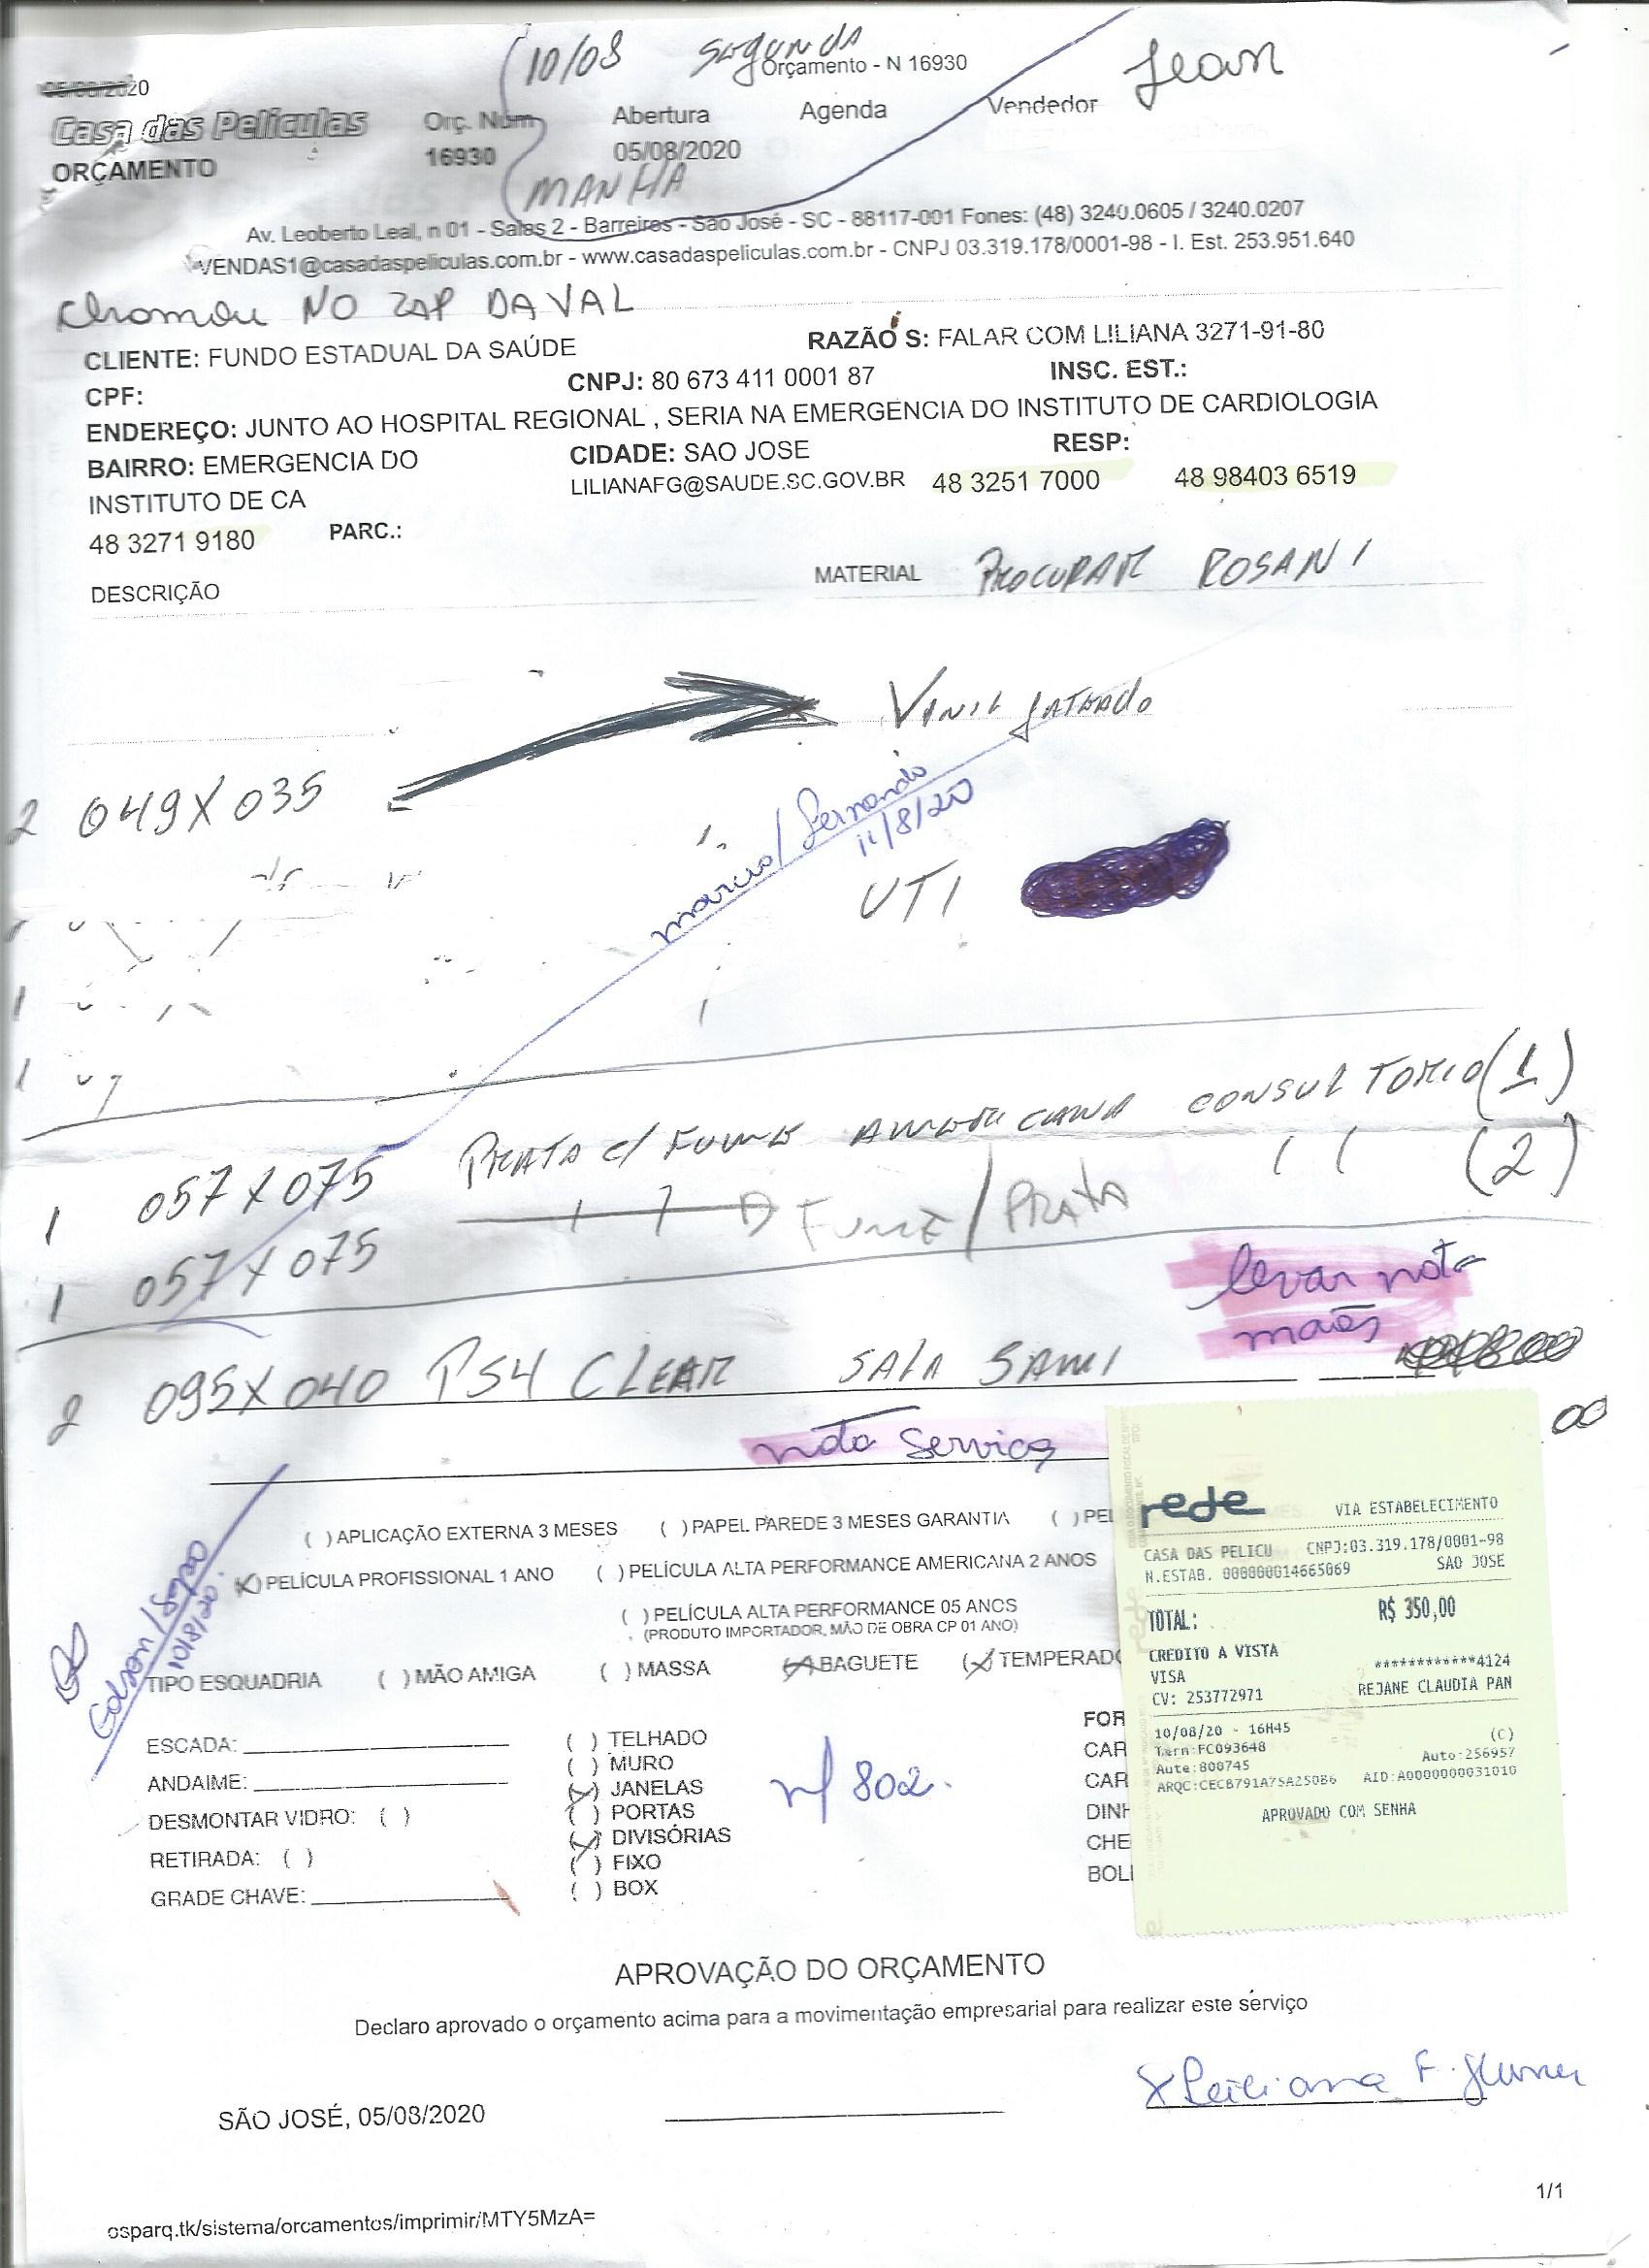 10/08 Segunda
Orçamento - N 16930
Jean
05/08/2020
Casa das Películas
ORÇAMENTO
Orç. Núm
16930
Abertura
05/08/2020
Agenda
Vendedor
MANHA
Av. Leoberto Leal, n 01 - Salas 2 - Barreiros - São José - SC - 88117-001 Fones: (48) 3240.0605 / 3240.0207
VENDAS1@casadaspeliculas.com.br - www.casadaspeliculas.com.br - CNPJ 03.319.178/0001-98 - I. Est. 253.951.640
Chamou NO ZAP DA VAL
CLIENTE: FUNDO ESTADUAL DA SAÚDE
RAZÃO S: FALAR COM LILIANA 3271-91-80
CPF:
CNPJ: 80 673 411 0001 87
INSC. EST.:
ENDEREÇO: JUNTO AO HOSPITAL REGIONAL , SERIA NA EMERGENCIA DO INSTITUTO DE CARDIOLOGIA
BAIRRO: EMERGENCIA DO
INSTITUTO DE CA
CIDADE: SAO JOSE
RESP:
LILIANAFG@SAUDE.SC.GOV.BR 48 3251 7000 48 98403 6519
48 3271 9180
PARC.:
DESCRIÇÃO
MATERIAL
PROCURAR ROSANI
VINIL JATEADO
2 049X035
marcio/Fernando
11/8/20
UTI
1 057X075 PRATA c/ FUME AMERICANA CONSULTORIO (1)
1 057X075 FUME/PRATA (2)
levar nota
maõs
2 095X040 PS4 CLEAR SALA SAMI
nota serviços
( ) APLICAÇÃO EXTERNA 3 MESES ( ) PAPEL PAREDE 3 MESES GARANTIA ( ) PEL
(X) PELÍCULA PROFISSIONAL 1 ANO ( ) PELÍCULA ALTA PERFORMANCE AMERICANA 2 ANOS
( ) PELÍCULA ALTA PERFORMANCE 05 ANOS
(PRODUTO IMPORTADOR, MÃO DE OBRA CP 01 ANO)
TIPO ESQUADRIA ( ) MÃO AMIGA ( ) MASSA (X) BAGUETE (X) TEMPERADO
10/8/20
ESCADA:
ANDAIME:
DESMONTAR VIDRO: ( )
RETIRADA: ( )
GRADE CHAVE:
( ) TELHADO
( ) MURO
(X) JANELAS
( ) PORTAS
(X) DIVISÓRIAS
( ) FIXO
( ) BOX
n/ 802.
FOR
CAR
CAR
DINH
CHE
BOL
rede
VIA ESTABELECIMENTO
CASA DAS PELICU CNPJ:03.319.178/0001-98
N.ESTAB. 000000014665069 SAO JOSE
TOTAL: R$ 350,00
CREDITO A VISTA
VISA ************4124
CV: 253772971 REJANE CLAUDIA PAN
10/08/20 - 16H45 (C)
Term:FC093648 Auto:256957
Aute:800745
ARQC:CECB791A75A250B6 AID:A0000000031010
APROVADO COM SENHA
APROVAÇÃO DO ORÇAMENTO
Declaro aprovado o orçamento acima para a movimentação empresarial para realizar este serviço
SÃO JOSÉ, 05/08/2020
1/1
osparq.tk/sistema/orcamentos/imprimir/MTY5MzA=